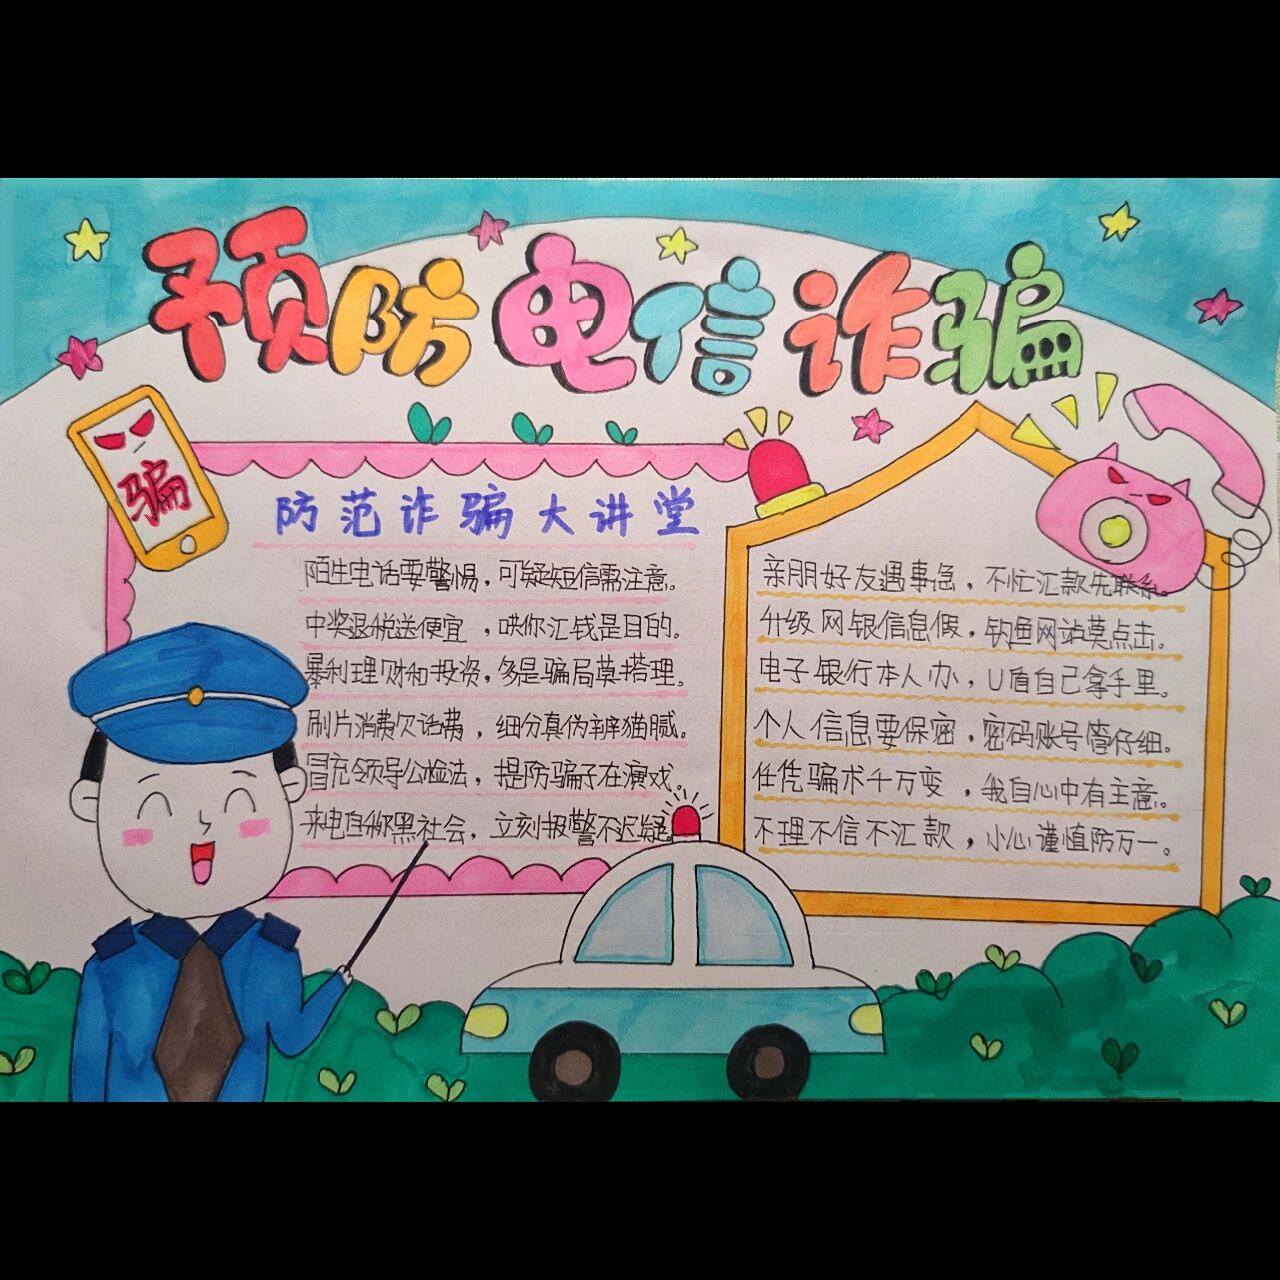 预防电信诈骗
骗
防范诈骗大讲堂
陌生电话要警惕，可疑短信需注意。
中奖退税送便宜，哄你汇钱是目的。
暴利理财和投资，多是骗局莫搭理。
刷片消费欠话费，细分真伪辨猫腻。
冒充领导公检法，提防骗子在演戏。
来电自称黑社会，立刻报警不迟疑。
亲朋好友遇事急，不忙汇款先联系。
升级网银信息假，钓鱼网站莫点击。
电子银行本人办，U盾自己拿手里。
个人信息要保密，密码账号管仔细。
任凭骗术千万变，我自心中有主意。
不理不信不汇款，小心谨慎防万一。